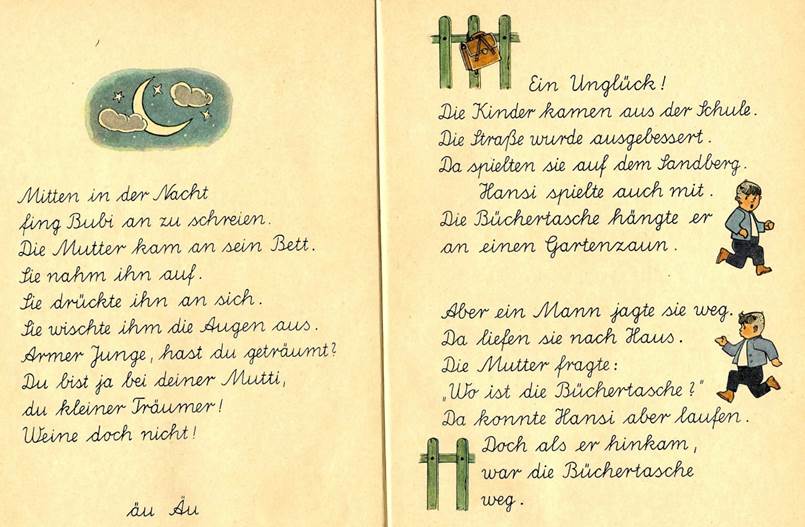 Mitten in der Nacht
fing Bubi an zu schreien.
Die Mutter kam an sein Bett.
Sie nahm ihn auf.
Sie drückte ihn an sich.
Sie wischte ihm die Augen aus.
Armer Junge, hast du geträumt?
Du bist ja bei deiner Mutti,
du kleiner Träumer!
Weine doch nicht!
äu Äu
Ein Unglück!
Die Kinder kamen aus der Schule.
Die Straße wurde ausgebessert.
Da spielten sie auf dem Sandberg.
Hansi spielte auch mit.
Die Büchertasche hängte er
an einen Gartenzaun.
Aber ein Mann jagte sie weg.
Da liefen sie nach Haus.
Die Mutter fragte:
„Wo ist die Büchertasche?"
Da konnte Hansi aber laufen.
Doch als er hinkam,
war die Büchertasche
weg.